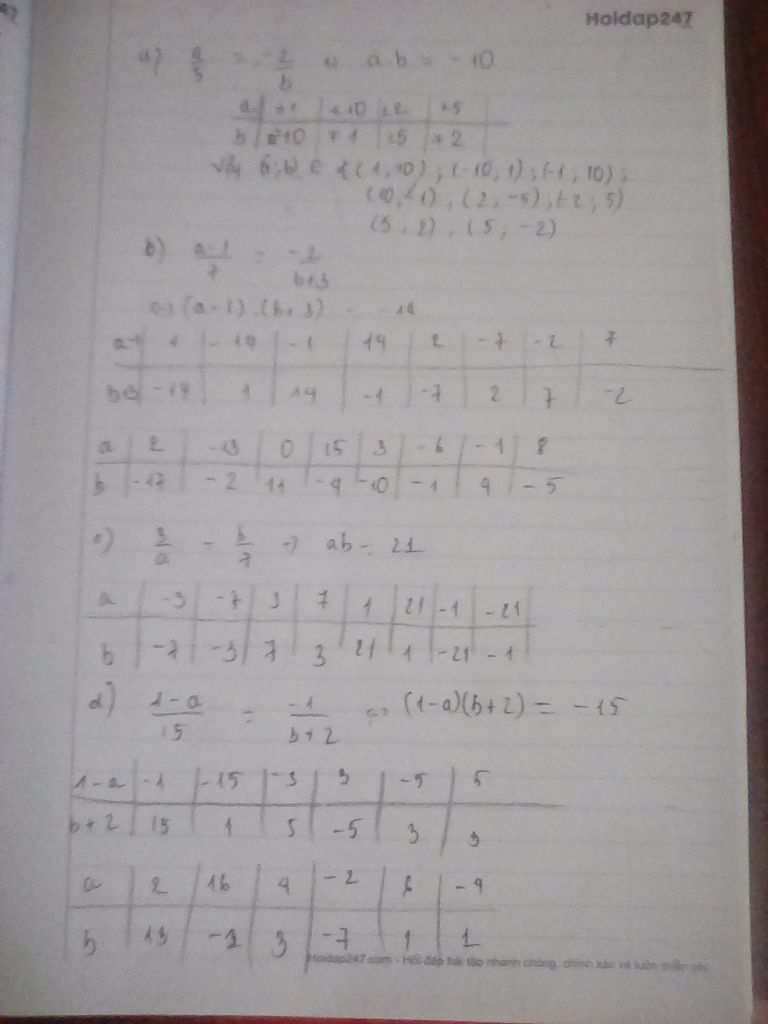 Hoidap247
a) a/5 = -2/b ⇔ a.b = -10
a | ±1 | ±10 | ±2 | ±5
b | ∓10 | ∓1 | ∓5 | ∓2
Vậy (a;b) ∈ {(1,-10); (-10,1); (-1,10);
(10,-1), (2;-5); (-2;5)
(5,-2)
b) a-1/7 = -2/b+3
⇔ (a-1).(b+3) = -14
a-1 | 1 | -14 | -1 | 14 | 2 | -7 | -2 | 7
b+3 | -14 | 1 | 14 | -1 | -7 | 2 | 7 | -2
a | 2 | -13 | 0 | 15 | 3 | -6 | -1 | 8
b | -17 | -2 | 11 | -4 | -10 | -1 | 4 | -5
c) 3/a = b/7 → ab = 21
a | -3 | -7 | 3 | 7 | 1 | 21 | -1 | -21
b | -7 | -3 | 7 | 3 | 21 | 1 | -21 | -1
d) 1-a/15 = -1/b+2 ⇔ (1-a)(b+2) = -15
1-a | -1 | -15 | -3 | 3 | -5 | 5
b+2 | 15 | 1 | 5 | -5 | 3 | 3
a | 2 | 16 | 4 | -2 | 6 | -4
b | 13 | -1 | 3 | -7 | 1 | 1
Hoidap247.com - Hỏi đáp bài tập nhanh chóng, chính xác và luôn miễn phí